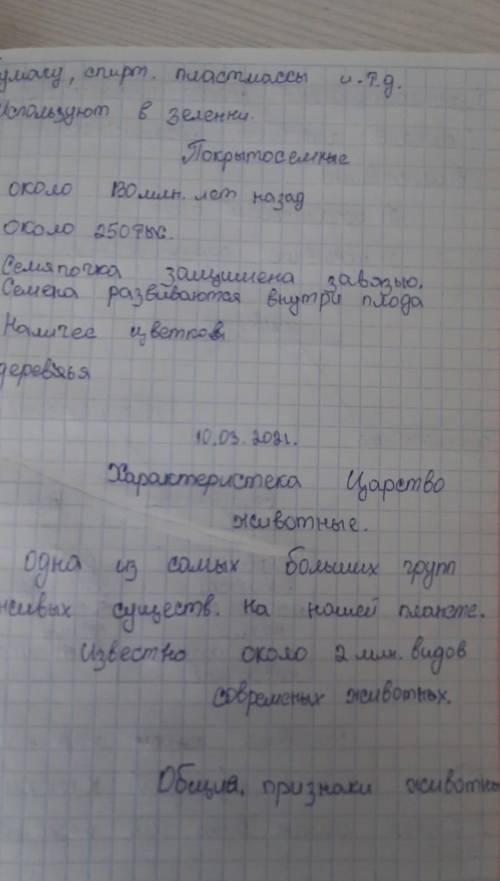 бумагу, спирт. пластмассы и.т.д.
Используют в зеленни.
Покрытосемные
около 130 млн. лет назад
около 250 тыс.
Семяпочка защищена завязью.
Семена развиваются внутри плода
Наличее цветков
деревья
10.03.2021.
Характеристека Царство
животные.
одна из самых больших групп
живых существ. на нашей планете.
Известно около 2 млн. видов
современых животных.
Общие, признаки животны